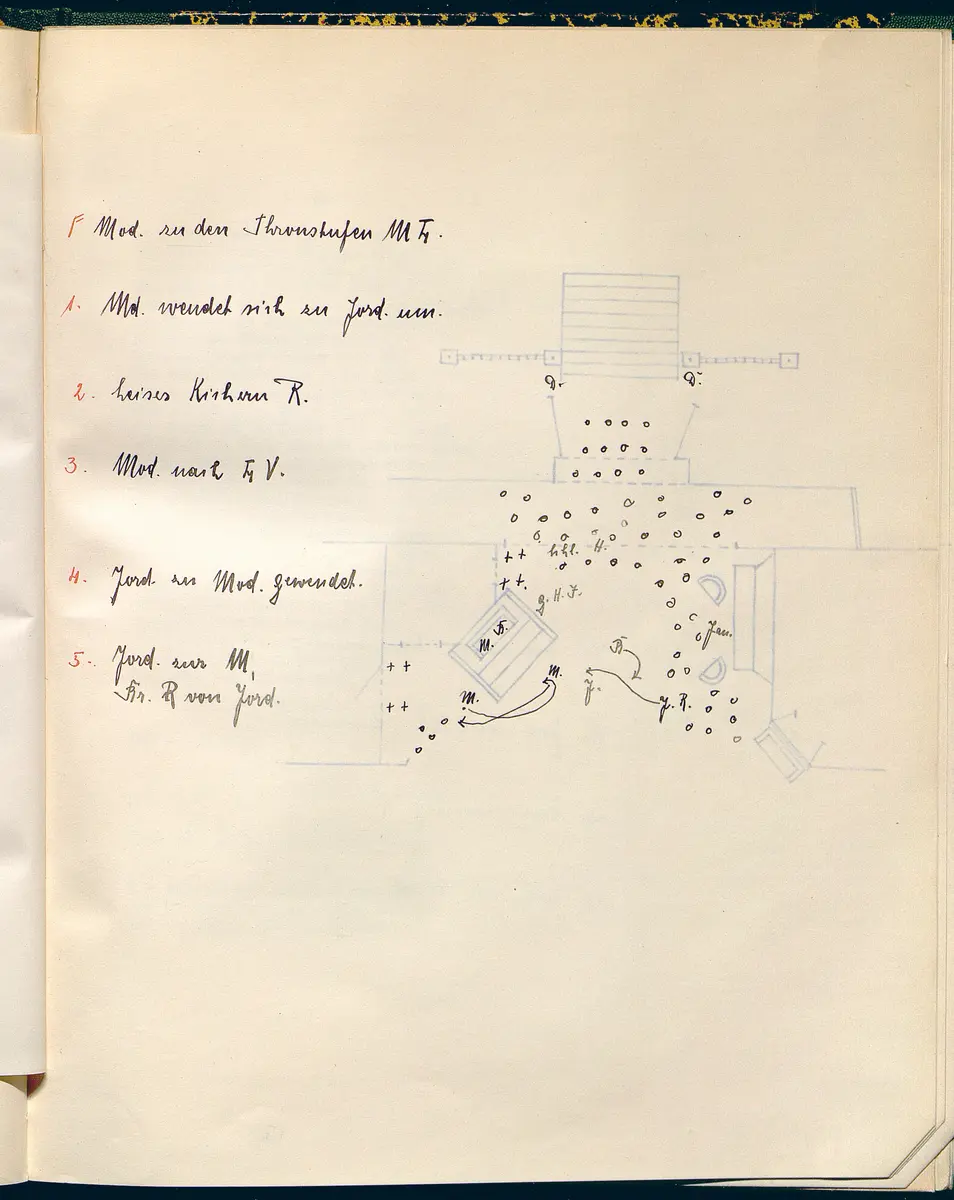 Mod. zu den Thronstufen M
1. Md. wendet sich zu Jord. um.
2. leises Kichern R.
3. Mod. nach V.
4. Jord. zu Mod. gewendet.
5. Jord. zur M,
Kr. R von Jord.
D. D.
H.
g. H. F.
M.
Jau.
M. M.
J. J. R.